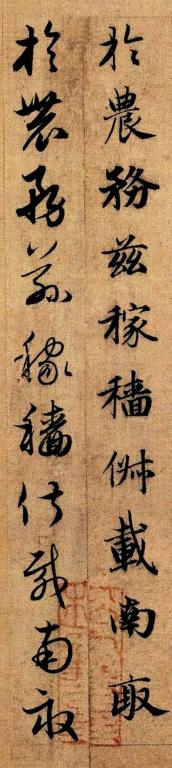 於農務茲稼穡俶載南畝
於農務茲稼穡俶載南畝